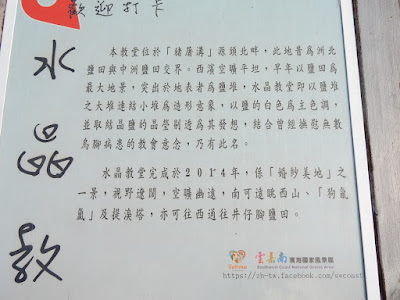 歡迎打卡
水晶教
本教堂位於「豬屠溝」源頭北畔，此地昔為洲北
鹽田與中洲鹽田交界。西濱空曠平坦，早年以鹽田為
最大地景，突出於地表者為鹽堆，水晶教堂即以鹽堆
之大堆連結小堆為造形意象，以鹽的白色為主色調，
並取結晶鹽的晶瑩剔透為其發想，結合曾經撫慰無數
烏腳病患的教會意念，乃有此名。
水晶教堂完成於2014年，係「婚紗美地」之
一景，視野遼闊，空曠幽遠，南可遠眺西山、「狗氤
氳」及提漢塔，亦可往西通往井仔腳鹽田。
雲嘉南濱海國家風景區
Southwest Coast National Scenic Area
https://zh-tw.facebook.com/swcoast